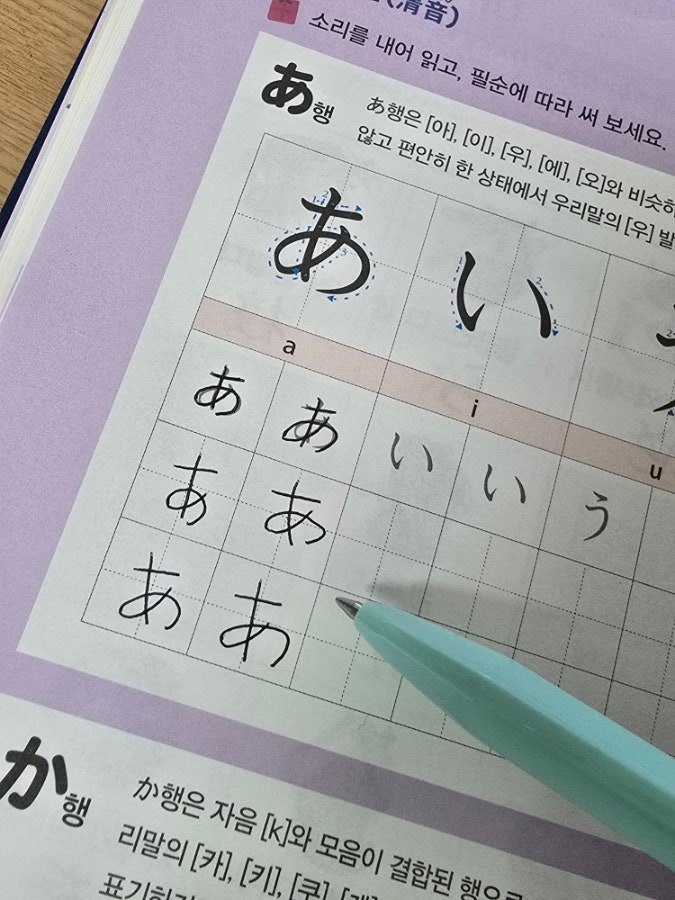 (清音)
소리를 내어 읽고, 필순에 따라 써 보세요.
あ행
あ행은 [아], [이], [우], [에], [오]와 비슷하
않고 편안히 한 상태에서 우리말의 [우] 발
あ い
a i u
ああいいう
ああ
ああ
か행
か행은 자음 [k]와 모음이 결합된 행으로
리말의 [카], [키], [쿠],